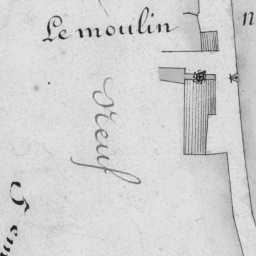 Le moulin
Neuf